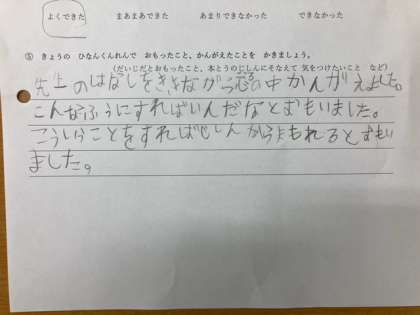 よくできた まあまあできた あまりできなかった できなかった
⑤ きょうの ひなんくんれんで おもったこと、かんがえたことを かきましょう。
(だいじだとおもったこと、本とうのじしんにそなえて 気をつけたいこと など)
先生のはなしをききながら心の中かんがえました。
こんなふうにすればいんだなとおもいました。
こういうことをすればじしんからまもれるとおもい
ました。